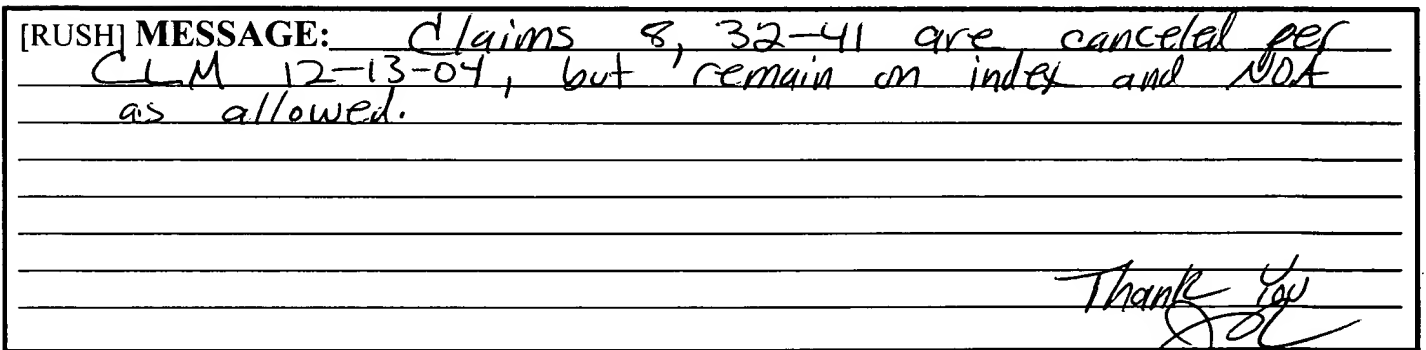 [RUSH] MESSAGE: Claims 8, 32-41 are canceled per
CLM 12-13-04, but remain on index and NOA
as allowed.
Thank You